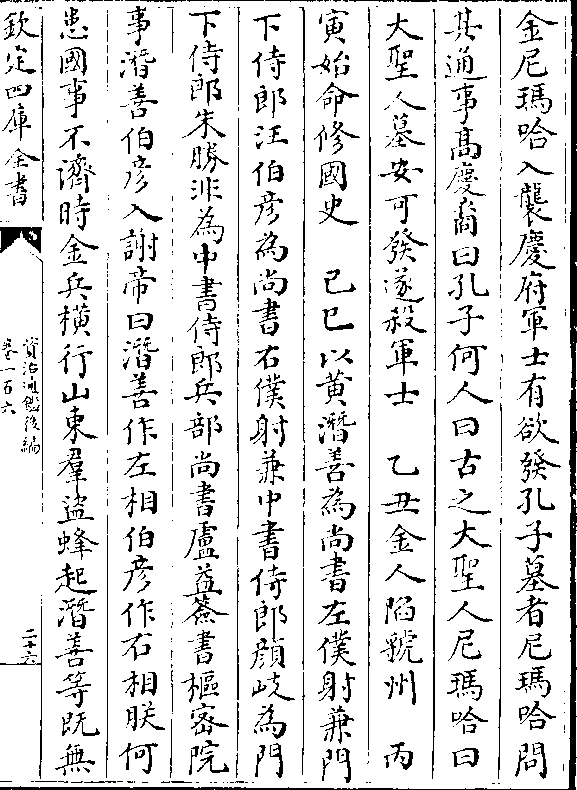 金尼瑪哈入襲慶府軍士有欲發孔子墓者尼瑪哈問
其通事髙慶裔曰孔子何人曰古之大聖人尼瑪哈曰
大聖人墓安可發遂殺軍士　乙丑金人陷虢州　丙
寅始命修國史　己巳以黄潛善為尚書左僕射兼門
下侍郎汪伯彦為尚書右僕射兼中書侍郎顔岐為門
下侍郎朱勝非為中書侍郎兵部尚書盧益簽書樞密院
事潛善伯彦入謝帝曰潛善作左相伯彦作右相朕何
患國事不濟時金兵橫行山東羣盗蜂起潛善等既無
欽定四庫全書
資治通鑑後編
卷一百六
二十六